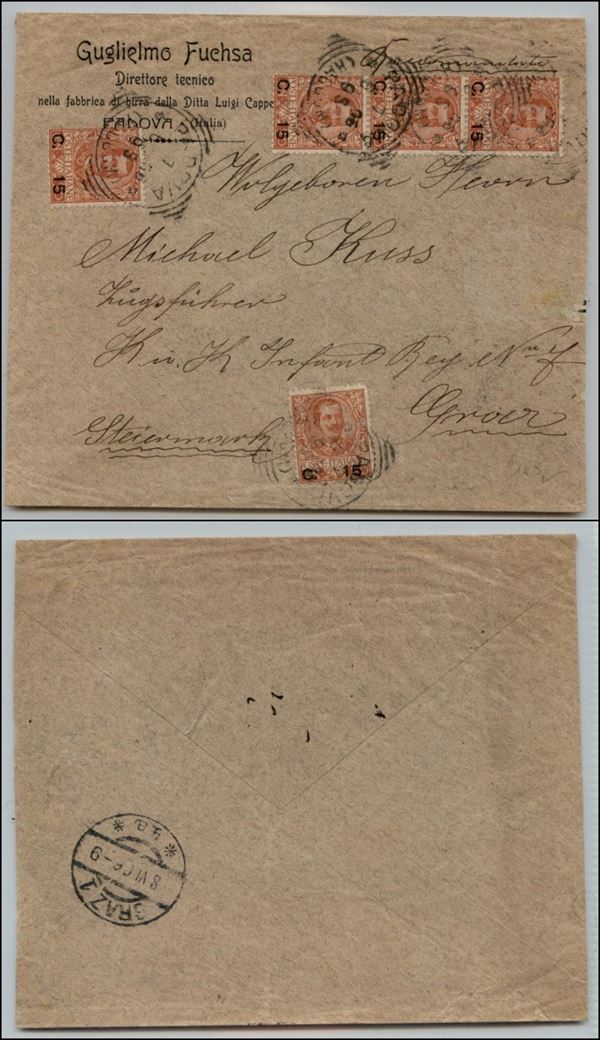 Guglielmo Fuchsa
Direttore tecnico
nella fabbrica di birra della Ditta Luigi Cappe
PADOVA (Italia)
C. 15
C. 15
C. 15
C. 15
PADOVA
Wolgeboren Herrn
Michael Kuss
Zugsführer
K u. K Infant Reg
Steiermark
C 15
GRAZ 1
8 VI 06-9
* 4a *